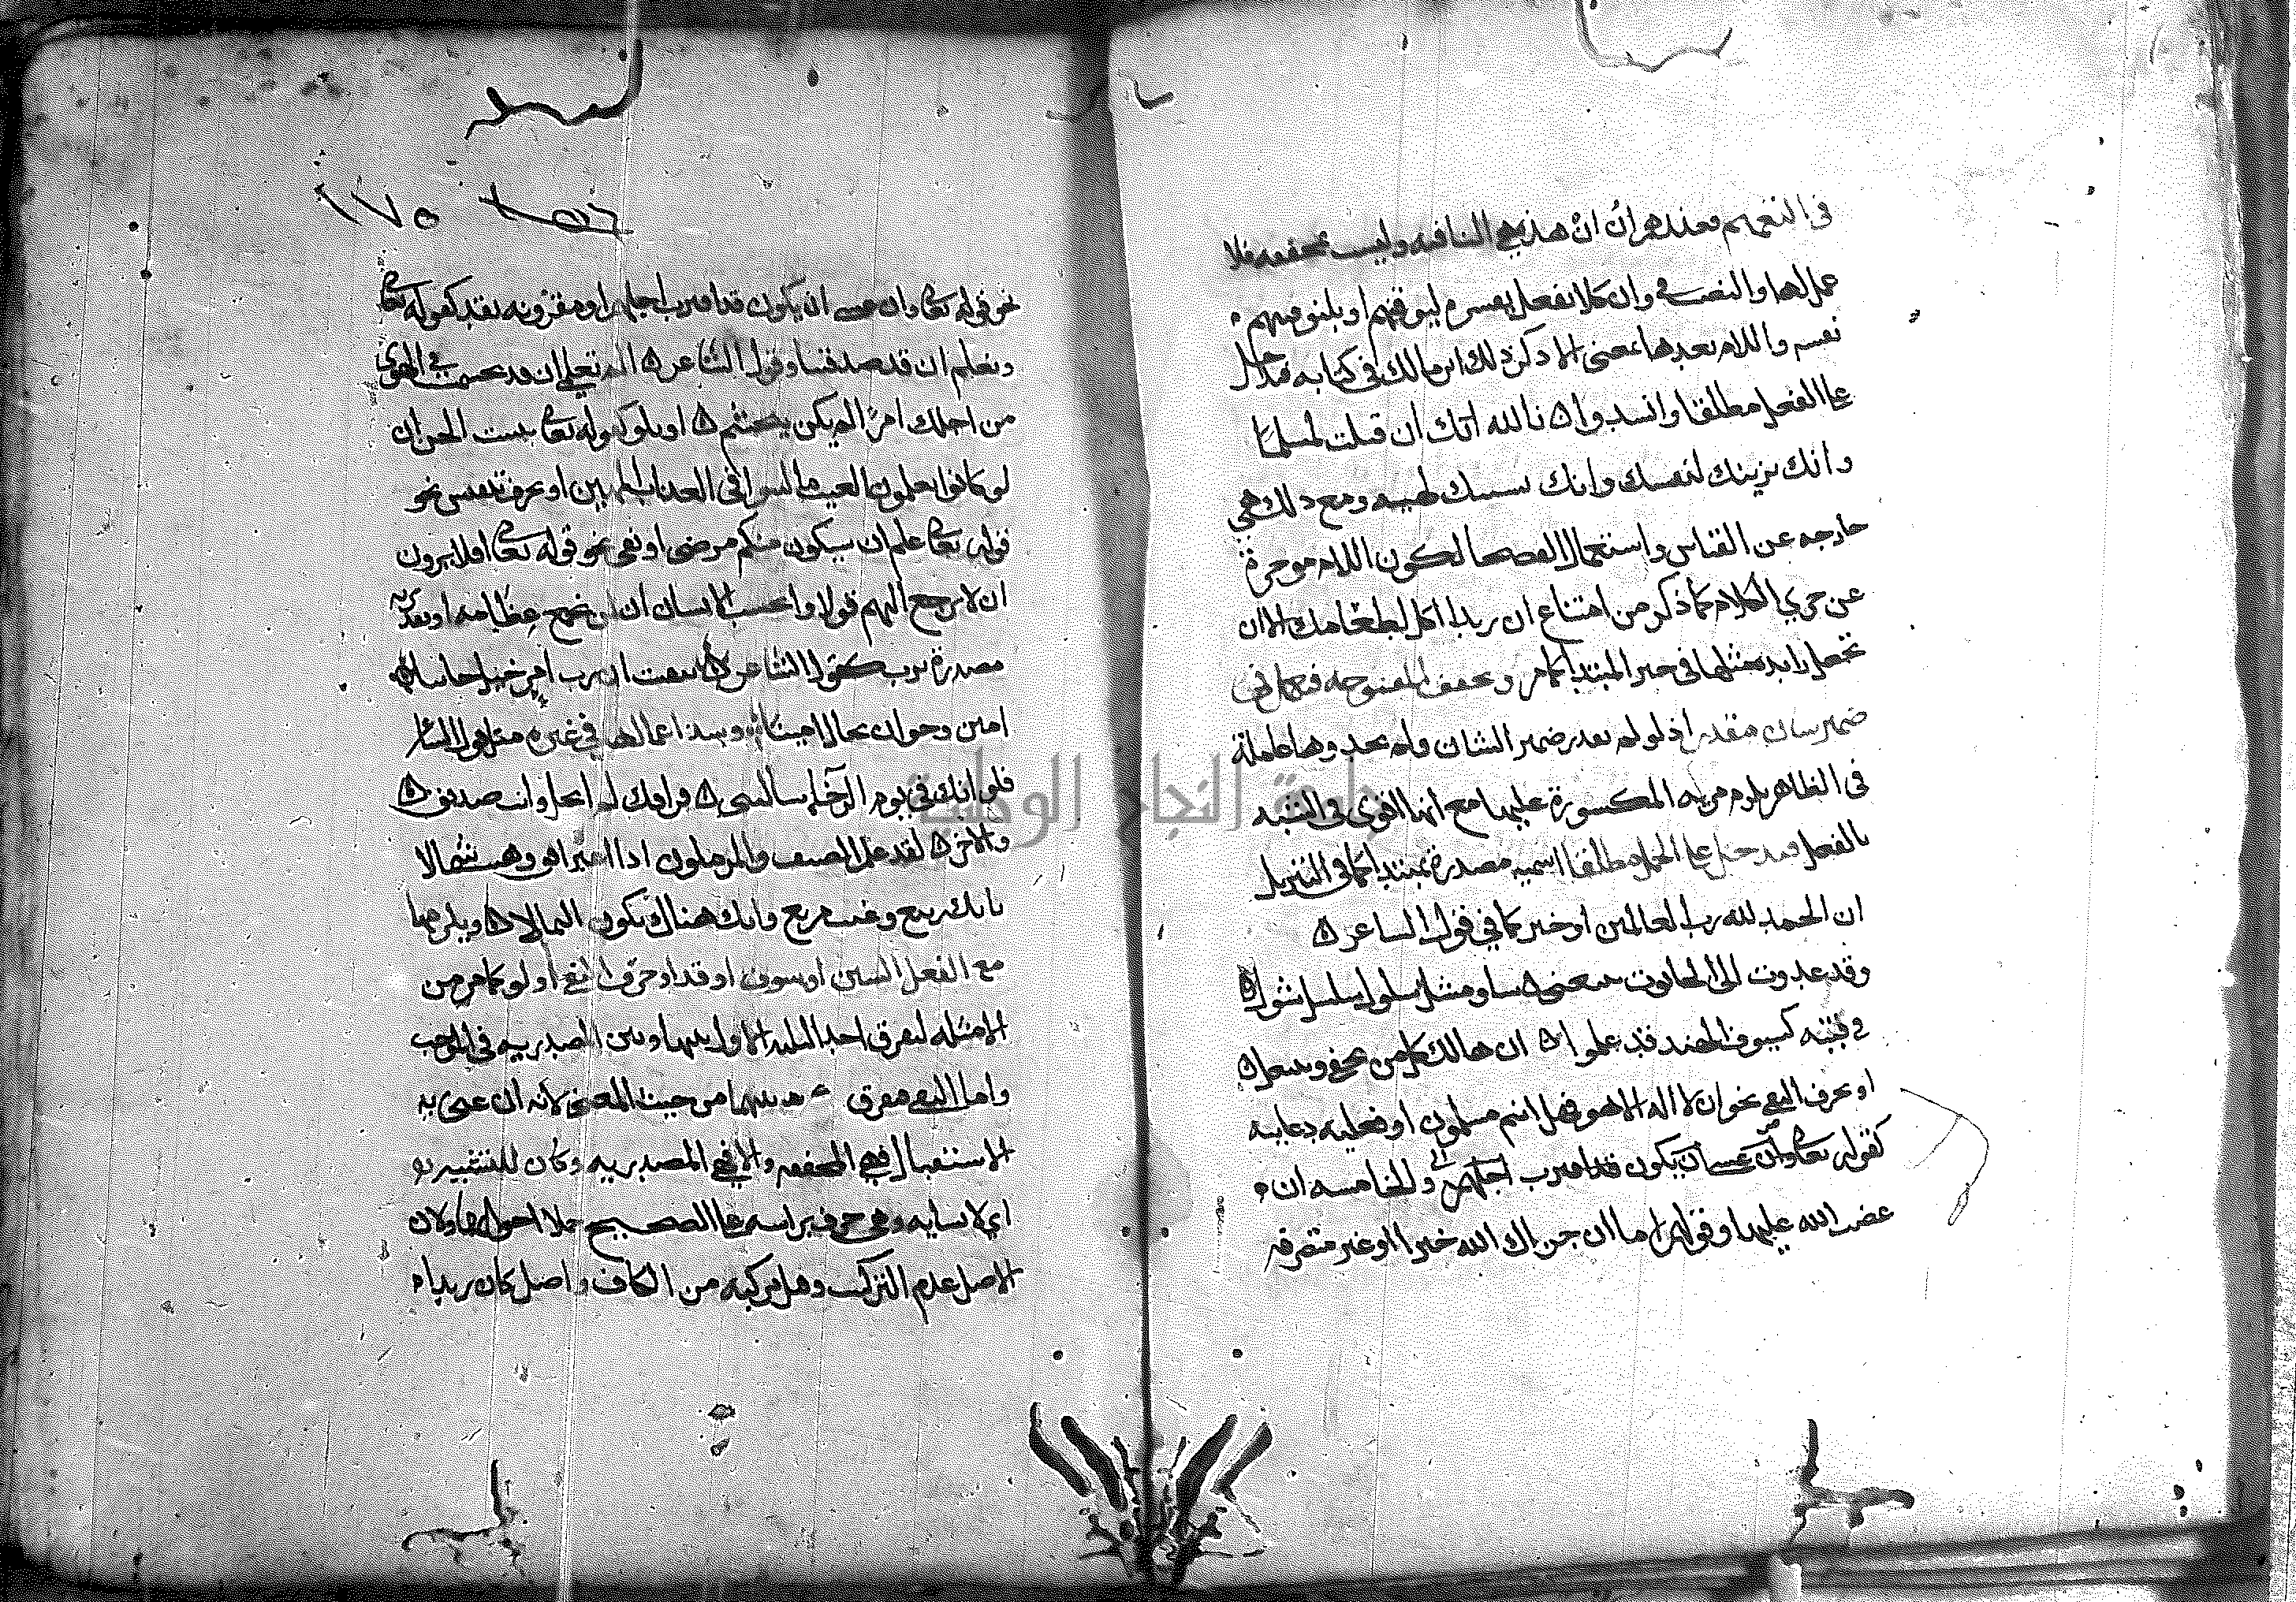 في النعيم فعندهم أن ان هذه هي النافيه وليست بمخففه فلا
عمل لها والنصب في وان كلا بفعل يفسره ليوفينهم او بليوفينهم
نفسه واللام بعدها بمعنى الا ذكر ذلك ابن مالك في كتابه
على الفعل مطلقا وانشدوا ه تالله انك ان قتلت لمسلما
وانك يزينك لنفسك وانك يشينك لهيه ومع ذلك هي
خارجه عن القياس واستعمال الفصحا لكون اللام موخرة
عن جزي الكلام كما ذكر من امتناع ان زيدا اكل لطعامك الا ان
تجعل زايدة مثلها في خبر المبتدا كما مر وتخفف المفتوحه فتعمل في
ضمير شان مقدر اذ لو لم يقدر ضمير الشان ولم يجدوها عاملة
في الظاهر يلزم مزيه المكسورة عليها مع انها اقوى في الشبه
بالفعل فتدخل على الجمل مطلقا اسميه مصدرة بمبتدا كما في التنزيل
ان الحمد لله رب العالمين او خبر كما في قول الشاعر ه
وقد غدوت الى الحانوت يتبعني ه شاو مشل شلول شلشل شول ه
في فتية كسيوف الهند قد علموا ه ان هالك كل من يحفى وينتعل ه
او بحرف النفي نحو ان لا اله الا هو فهل انتم مسلمون او فعليه دعاييه
كقوله تعالى وان عسى ان يكون قد اقترب اجلهم والخامسه ان
غضب الله عليها وقولهم اما ان جزاك الله خيرا او غير متصرفه
١٧٥
نحو قوله تعالى وان عسى ان يكون قد اقترب اجلهم او مقرونه بقد كقوله تعالى
ونعلم ان قد صدقتنا وقول الشاعر ه الم تعلمي ان قد تجشمت في الهوى
من اجلك امرا لم يكن يتجشم ه او بلو كقوله تعالى تبينت الجن ان
لو كانوا يعلمون الغيب ما لبثوا في العذاب المهين او بحرف تنفيس نحو
قوله تعالى علم ان سيكون منكم مرضى او نفي نحو قوله تعالى افلا يرون
ان لا يرجع اليهم قولا وايحسب الانسان ان لن نجمع عظامه او بعد
مصدرة برب كقول الشاعر ه تيقنت ان رب امرئ خيل خاينا ه
امين وخوان يخال امينا وشذ اعمالها في غيره مثل قول الشاعر
فلو انك في يوم الرخا سالتني ه فراقك لم ابخل وانت صديق ه
والاخر ه لقد علم الضيف والمرملون اذا اغبر افق وهبت شمالا
بانك ربيع وغيث مريع وانك هناك تكون الثمالا ه ويلزمها
مع الفعل السين او سوف او قد او حرف النفي او لو كما مر من
الامثله ليفرق احد الثلثه الاول بينها وبين المصدريه في الموجب
واما النفي فيفرق بينهما من حيث المعنى لانه ان عنى به
الاستقبال فهي المخففه والا فهي المصدريه وكان للتشبيه
اي لانشايه وهي حرف براسه على الصحيح حملا اخواتها ولان
الاصل عدم التركيب وهل مركبه من الكاف واصل كان زيدا